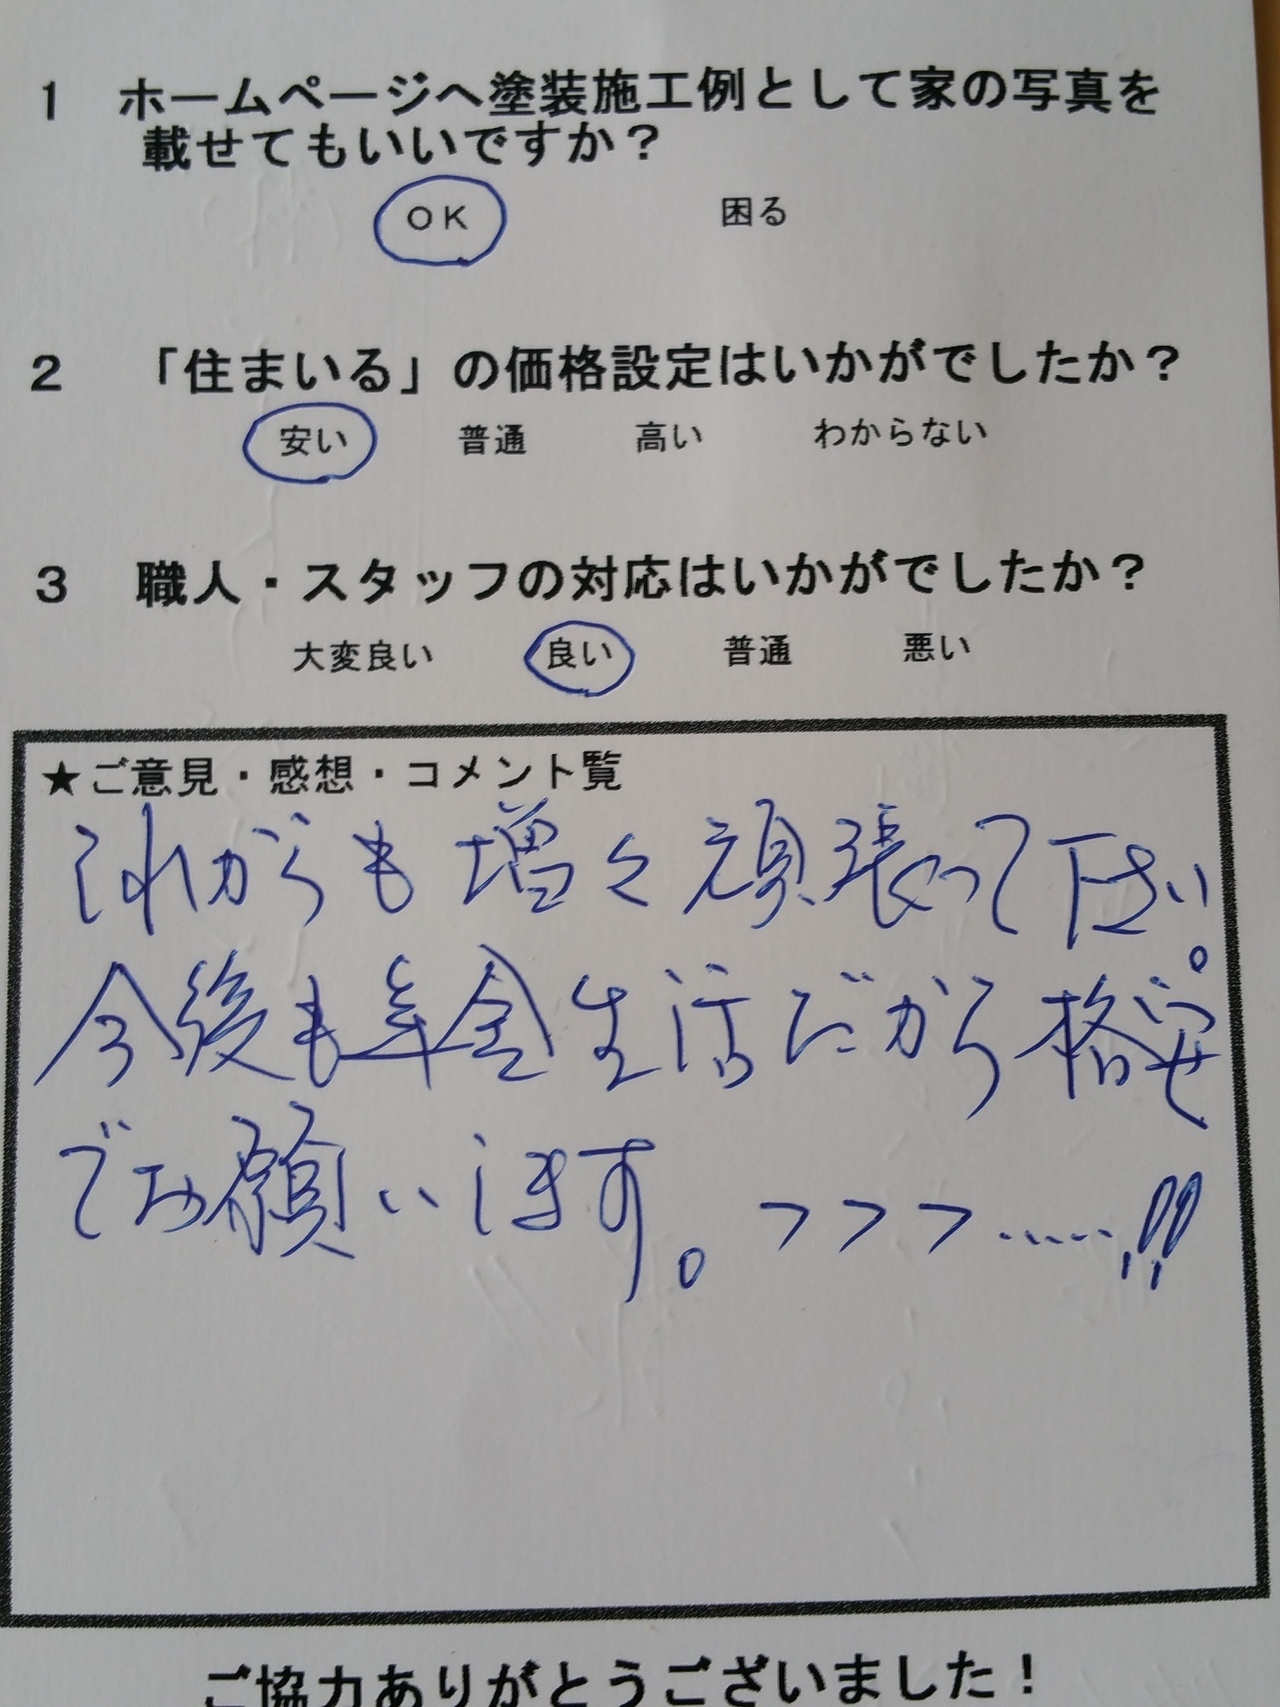 1 ホームページへ塗装施工例として家の写真を
載せてもいいですか？
OK 困る
2 「住まいる」の価格設定はいかがでしたか？
安い 普通 高い わからない
3 職人・スタッフの対応はいかがでしたか？
大変良い 良い 普通 悪い
★ご意見・感想・コメント覧
これからも増々頑張って下さい。
今後も年金生活だから格安
でお願いします。フフフ……!!
ご協力ありがとうございました！